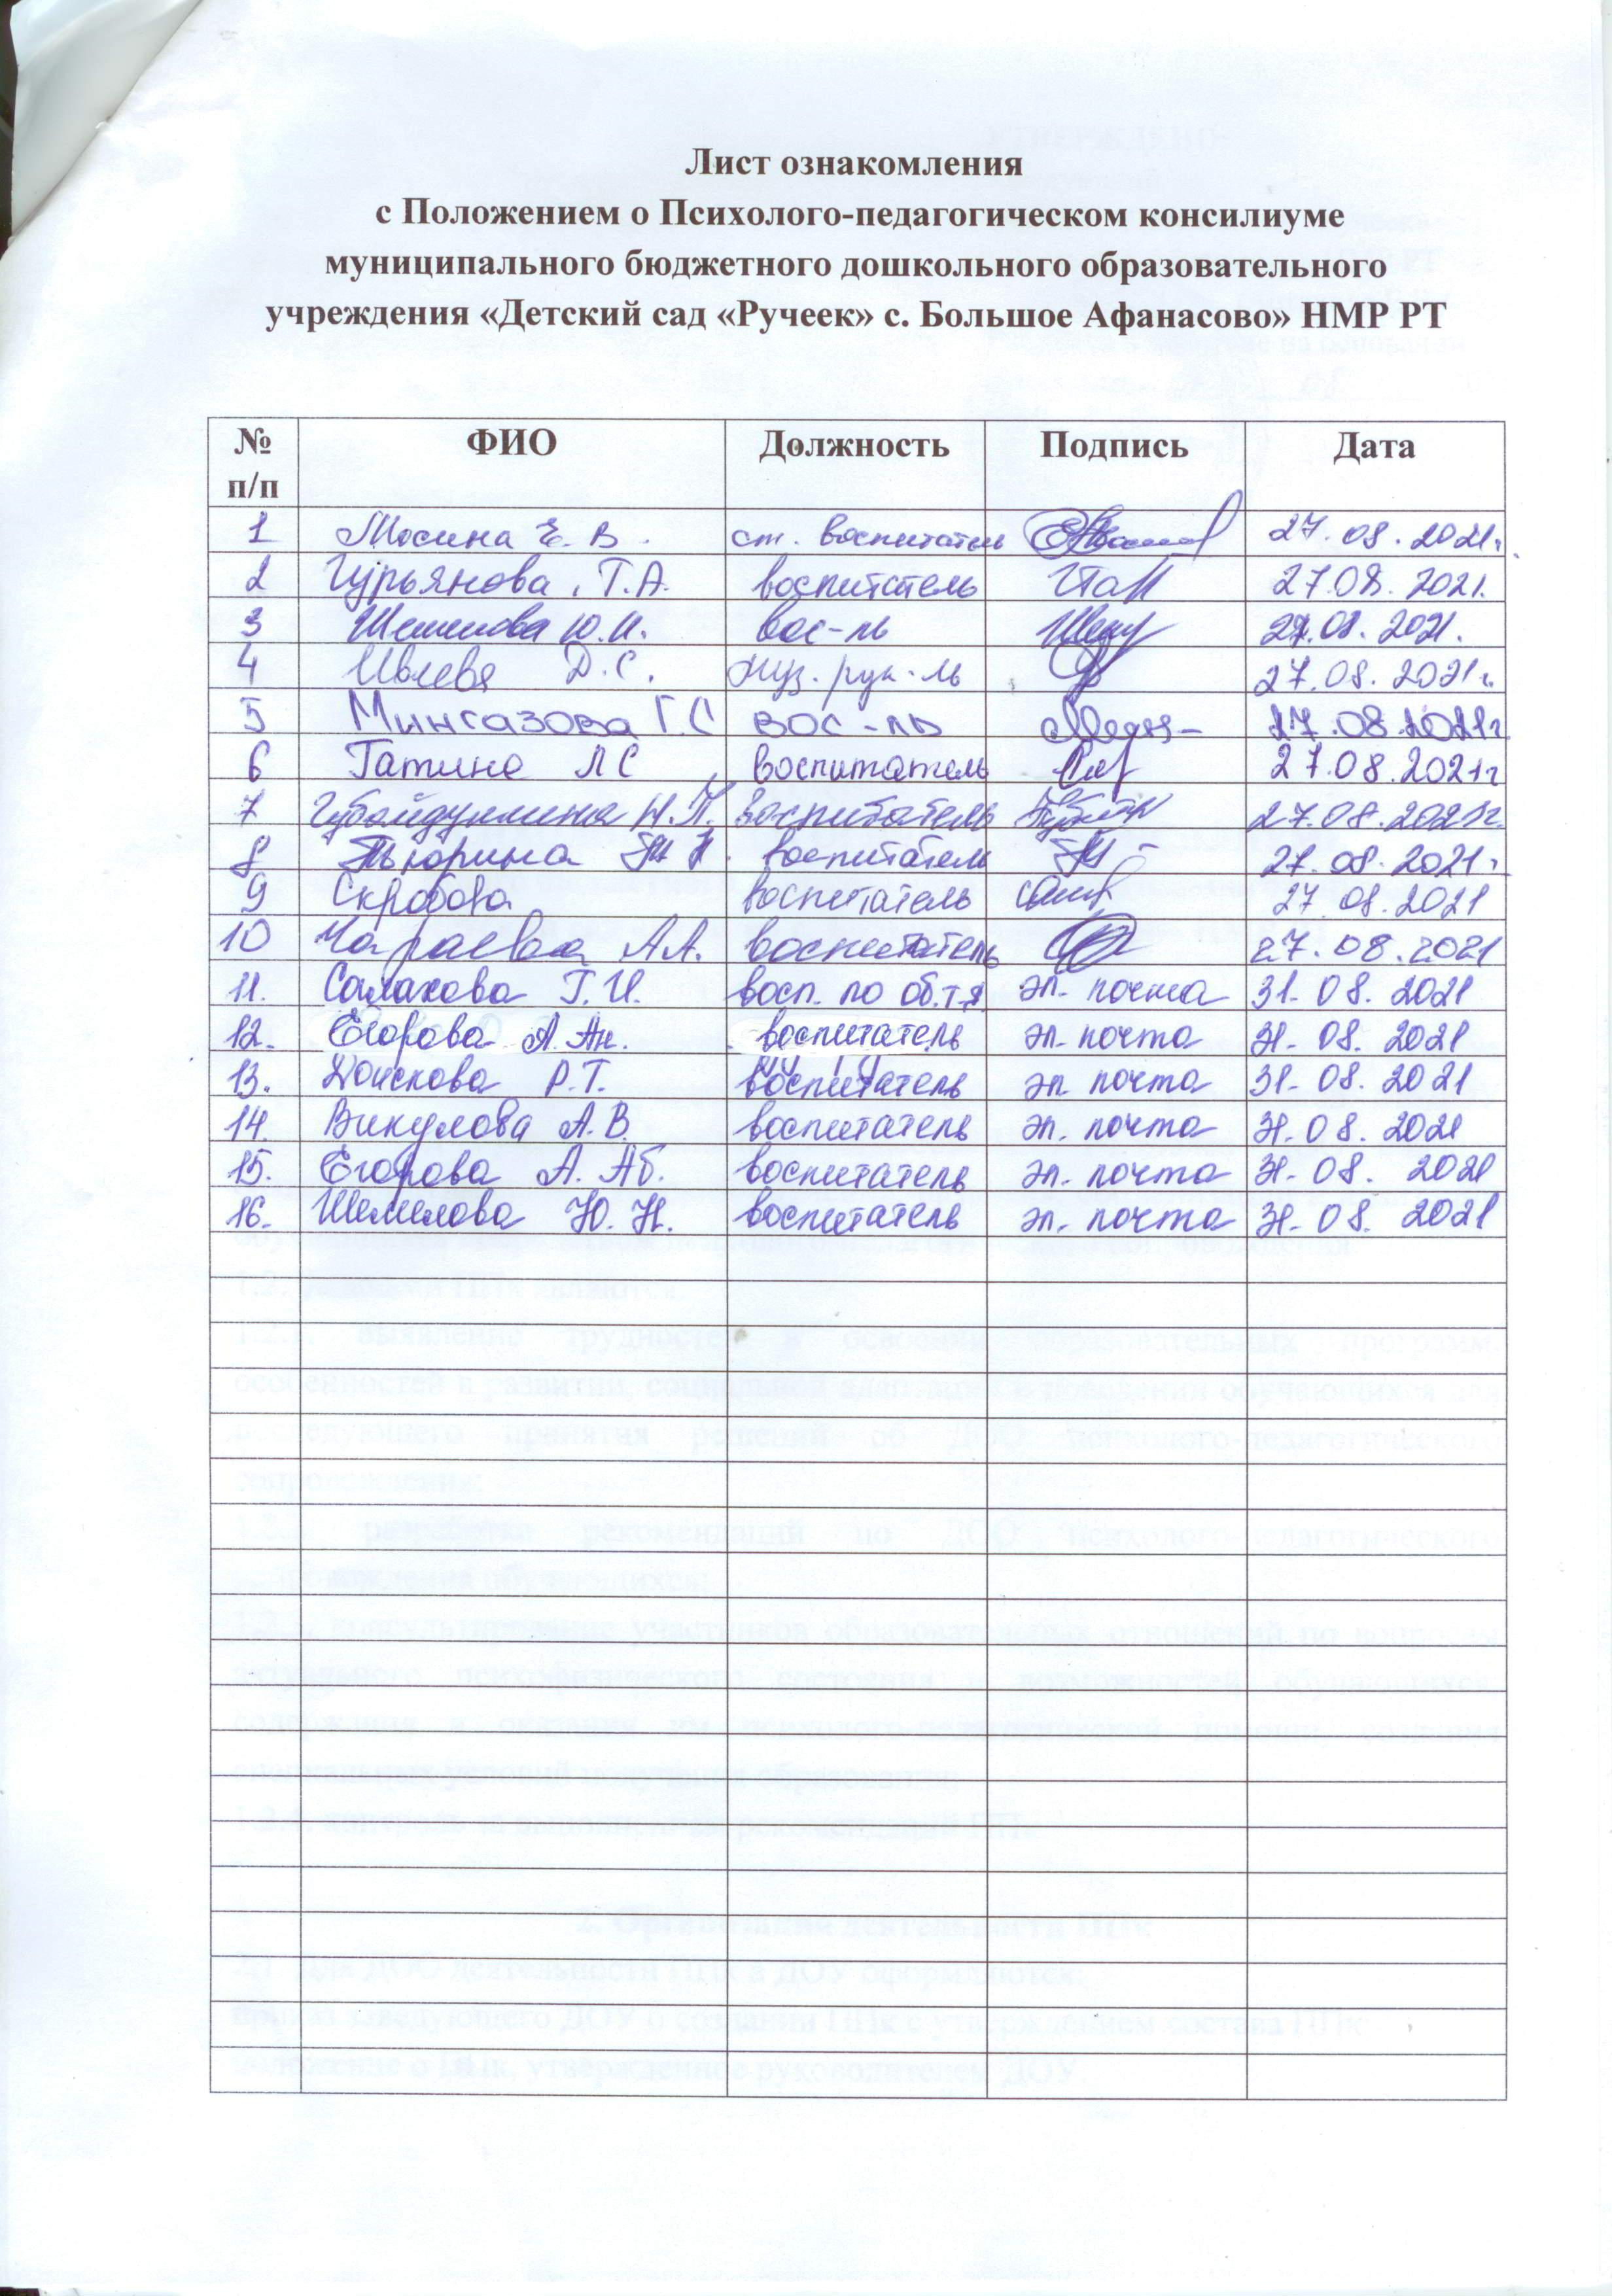 Лист ознакомления
с Положением о Психолого-педагогическом консилиуме
муниципального бюджетного дошкольного образовательного
учреждения «Детский сад «Ручеек» с. Большое Афанасово» НМР РТ
№ п/п ФИО Должность Подпись Дата
1 Мосина Е. В. ст. воспитатель 27.08.2021г.
2 Гурьянова Т.А. воспитатель 27.08.2021.
3 Шемелова Ю.Н. вос-ль 27.08.2021.
4 Ивлева Д.С. муз. рук-ль 27.08.2021г.
5 Мингазова Г.С вос-ль 27.08.2021г
6 Гатина Л С воспитатель 27.08.2021г
7 Губайдуллина воспитатель 27.08.2021г.
8 Тюрина воспитатель 27.08.2021г.
9 Скробова воспитатель 27.08.2021
10 А.А. воспитатель 27.08.2021
11. Салахова Г.И. восп. по об.т.я. эл. почта 31.08.2021
12. Егорова А.Ан. воспитатель эл. почта 31.08.2021
13. Р.Т. воспитатель эл почта 31.08.2021
14. Викулова А.В. воспитатель эл. почта 31.08.2021
15. Егорова А.Аб. воспитатель эл. почта 31.08.2021
16. Шемелова Ю.Н. воспитатель эл. почта 31.08.2021